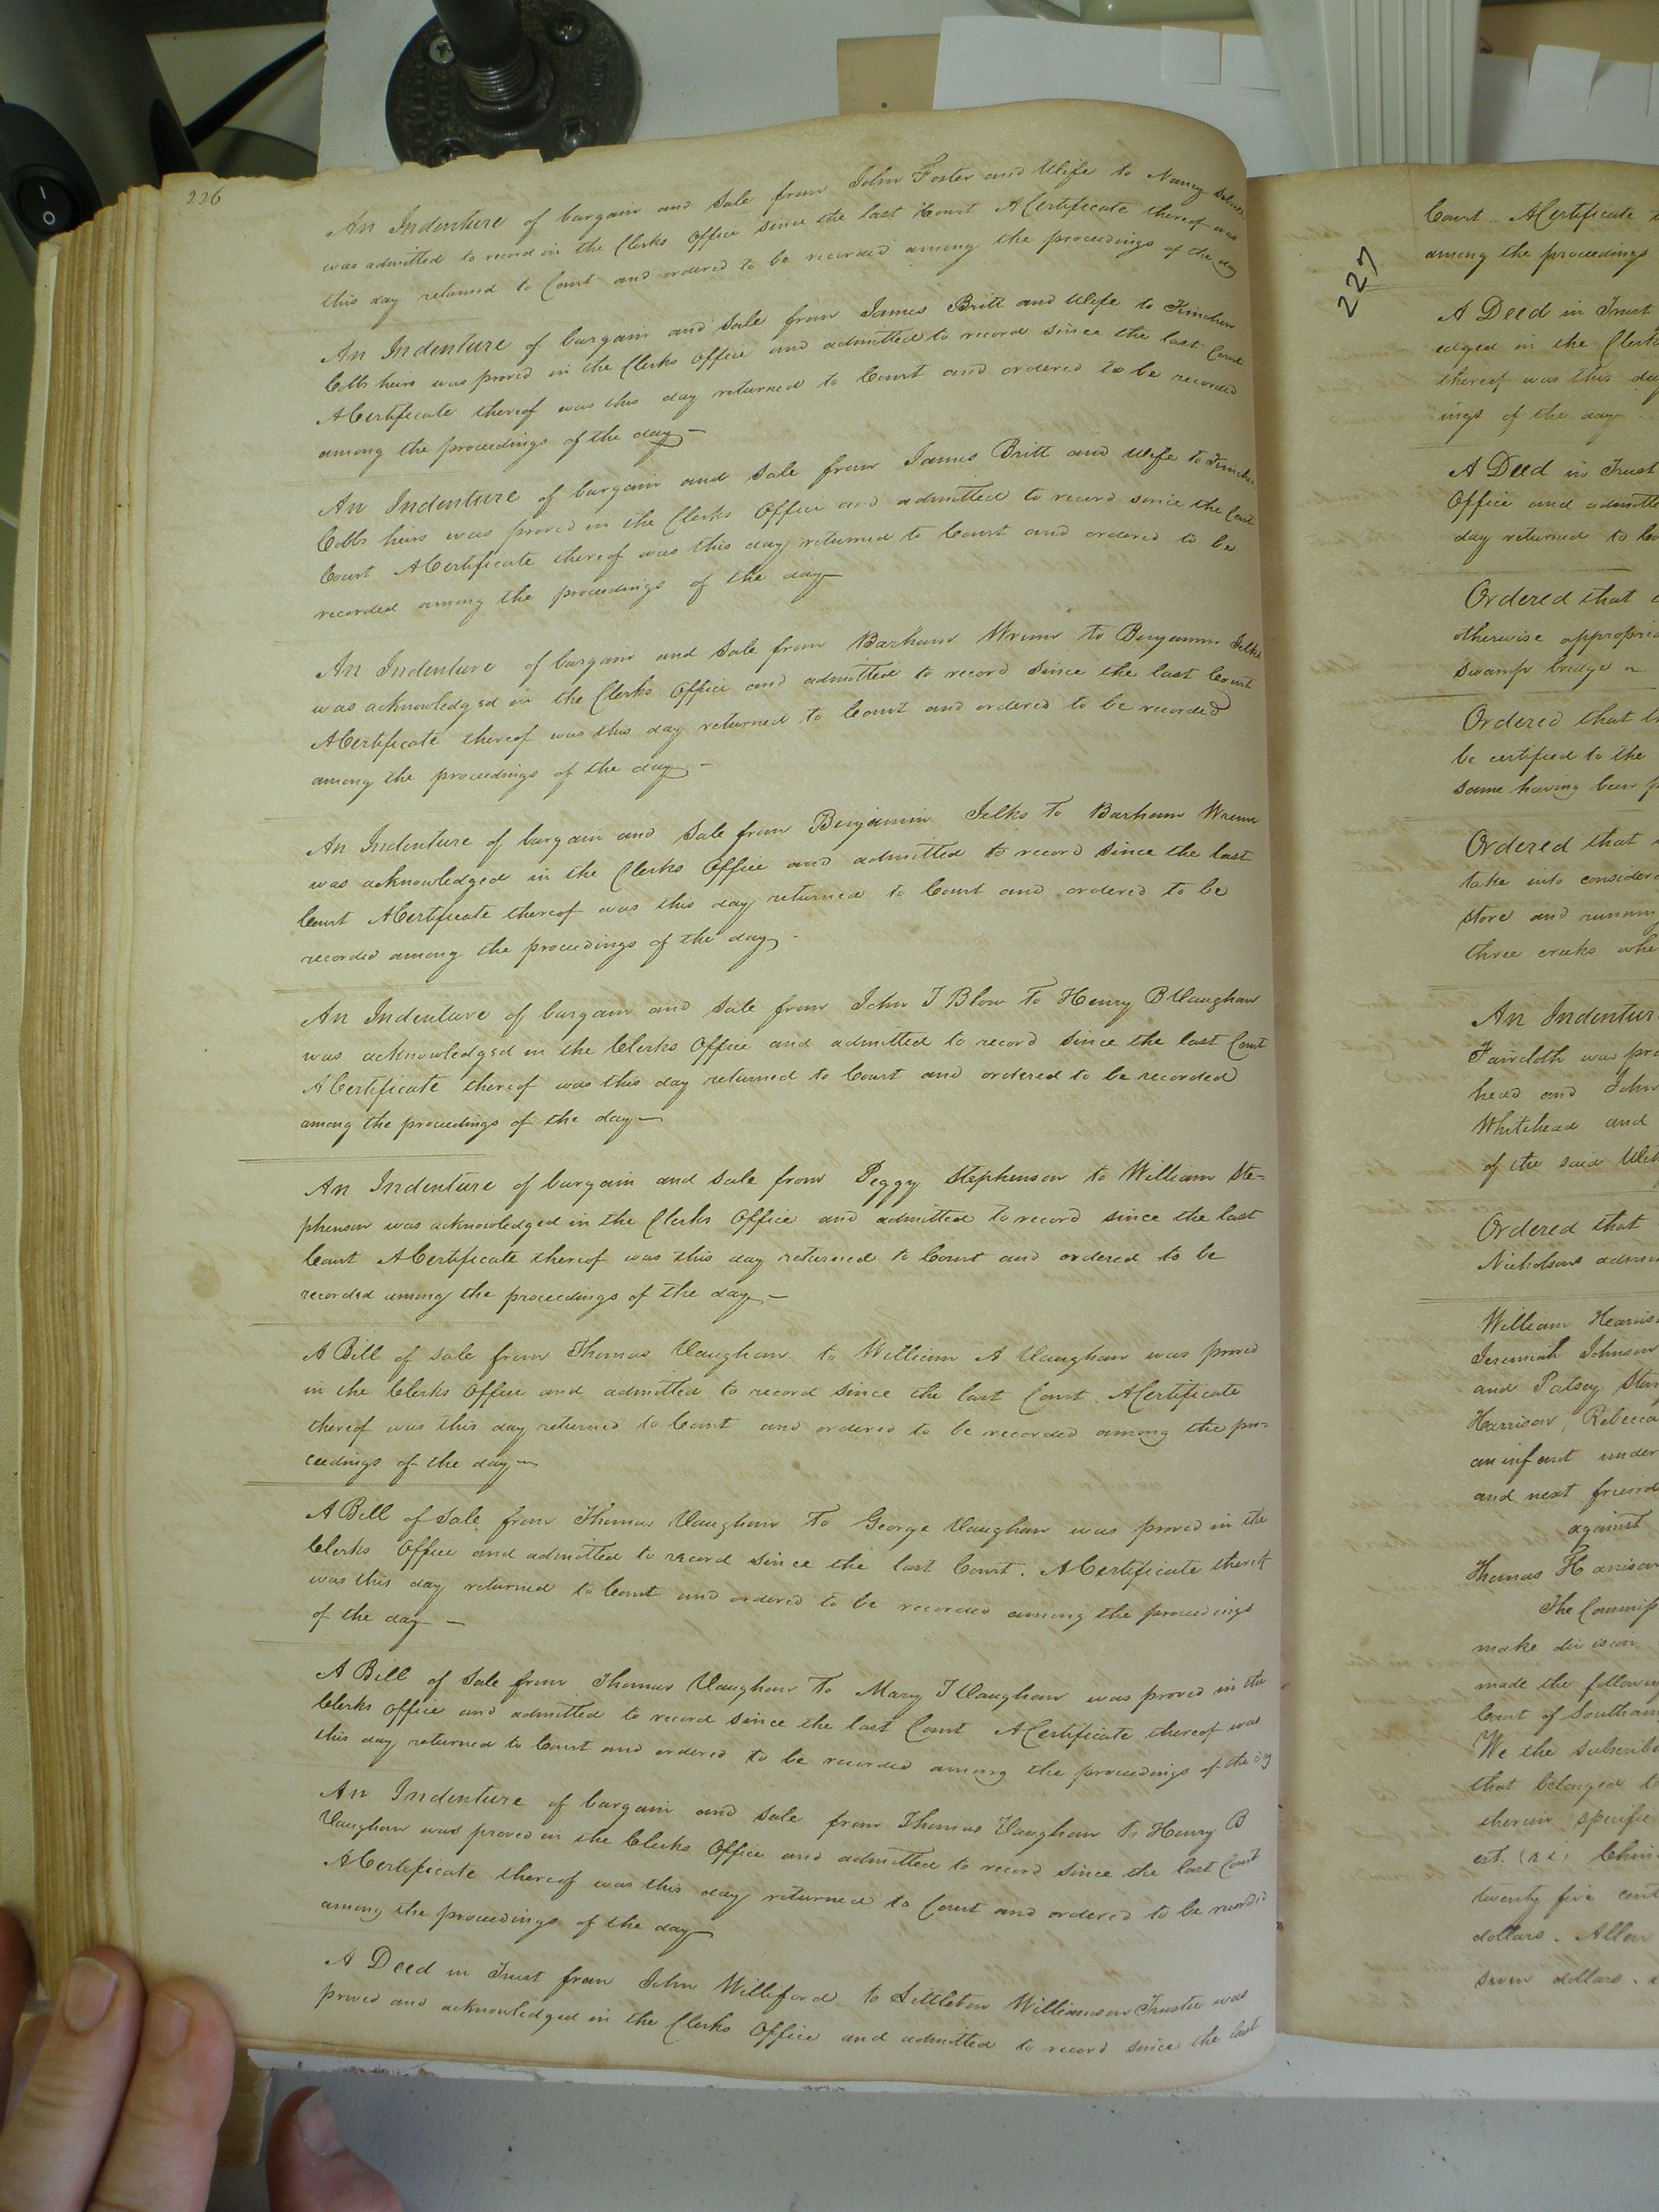 226
An Indenture of bargain and Sale from John Foster and Wife to Nancy
was admitted to record in the Clerks Office since the last Court A Certificate thereof was
this day returned to Court and ordered to be recorded among the proceedings of the day
An Indenture of bargain and Sale from James Britt and Wife to Kinchen
Cobbs heirs was proved in the Clerks Office and admitted to record since the last Court
A Certificate thereof was this day returned to Court and ordered to be recorded
among the proceedings of the day —
An Indenture of bargain and Sale from James Britt and Wife to
Cobbs heirs was proved in the Clerks Office and admitted to record since the
Court A Certificate thereof was this day returned to Court and ordered to be
recorded among the proceedings of the day —
An Indenture of bargain and Sale from Barham Wrenn to Benjamin Jelks
was acknowledged in the Clerks Office and admitted to record since the last Court
A Certificate thereof was this day returned to Court and ordered to be recorded
among the proceedings of the day —
An Indenture of bargain and Sale from Benjamin Jelks to Barham Wrenn
was acknowledged in the Clerks Office and admitted to record since the last
Court A Certificate thereof was this day returned to Court and ordered to be
recorded among the proceedings of the day -
An Indenture of bargain and Sale from John T Blow to Henry B Vaughan
was acknowledged in the Clerks Office and admitted to record since the last Court
A Certificate thereof was this day returned to Court and ordered to be recorded
among the proceedings of the day —
An Indenture of bargain and Sale from Peggy Stephenson to William Ste=
phenson was acknowledged in the Clerks Office and admitted to record since the last
Court A Certificate thereof was this day returned to Court and ordered to be
recorded among the proceedings of the day —
A Bill of Sale from Thomas Vaughan to William A Vaughan was proved
in the Clerks Office and admitted to record since the last Court. A Certificate
thereof was this day returned to Court and ordered to be recorded among the pro=
ceedings of the day —
A Bill of Sale from Thomas Vaughan to George Vaughan was proved in the
Clerks Office and admitted to record since the last Court. A Certificate thereof
was this day returned to Court and ordered to be recorded among the proceedings
of the day —
A Bill of Sale from Thomas Vaughan to Mary T Vaughan was proved in the
Clerks Office and admitted to record since the last Court A Certificate thereof was
this day returned to Court and ordered to be recorded among the proceedings of the day
An Indenture of bargain and Sale from Thomas Vaughan to Henry B
Vaughan was proved in the Clerks Office and admitted to record since the last Court
A Certificate thereof was this day returned to Court and ordered to be recorded
among the proceedings of the day —
A Deed in Trust from John Williford to Littleton Williamson Trustee was
proved and acknowledged in the Clerks Office and admitted to record since the last
227
Court A Certificate
among the proceedings
A Deed in Trust
edged in the Clerks
thereof was this day
ings of the day -
A Deed in Trust
Office and admitte
day returned to
Ordered that
otherwise appropria
swamp bridge
Ordered that
be certified to the
same having been
Ordered that
take into consider
store and running
three creeks whe
An Indentur
Faircloth was pro
head and John
Whitehead and
of the said
Ordered that
Nicholsons admin
William Harris
Jeremiah Johnson
and Patsey
Harrison, Rebecca
an infant under
and next friend
against
Thomas Harrison
The Commiss
make division
made the following
Court of Southam
We the subscribe
that belonged
therein specifie
est.
twenty five cent
dollars. Allen
seven dollars.